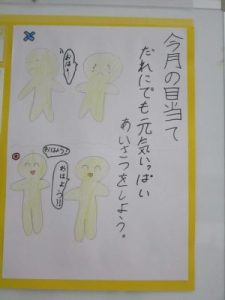 今月の目当て
だれにでも元気いっぱい
あいさつをしよう。
おはよう
おはよう!!